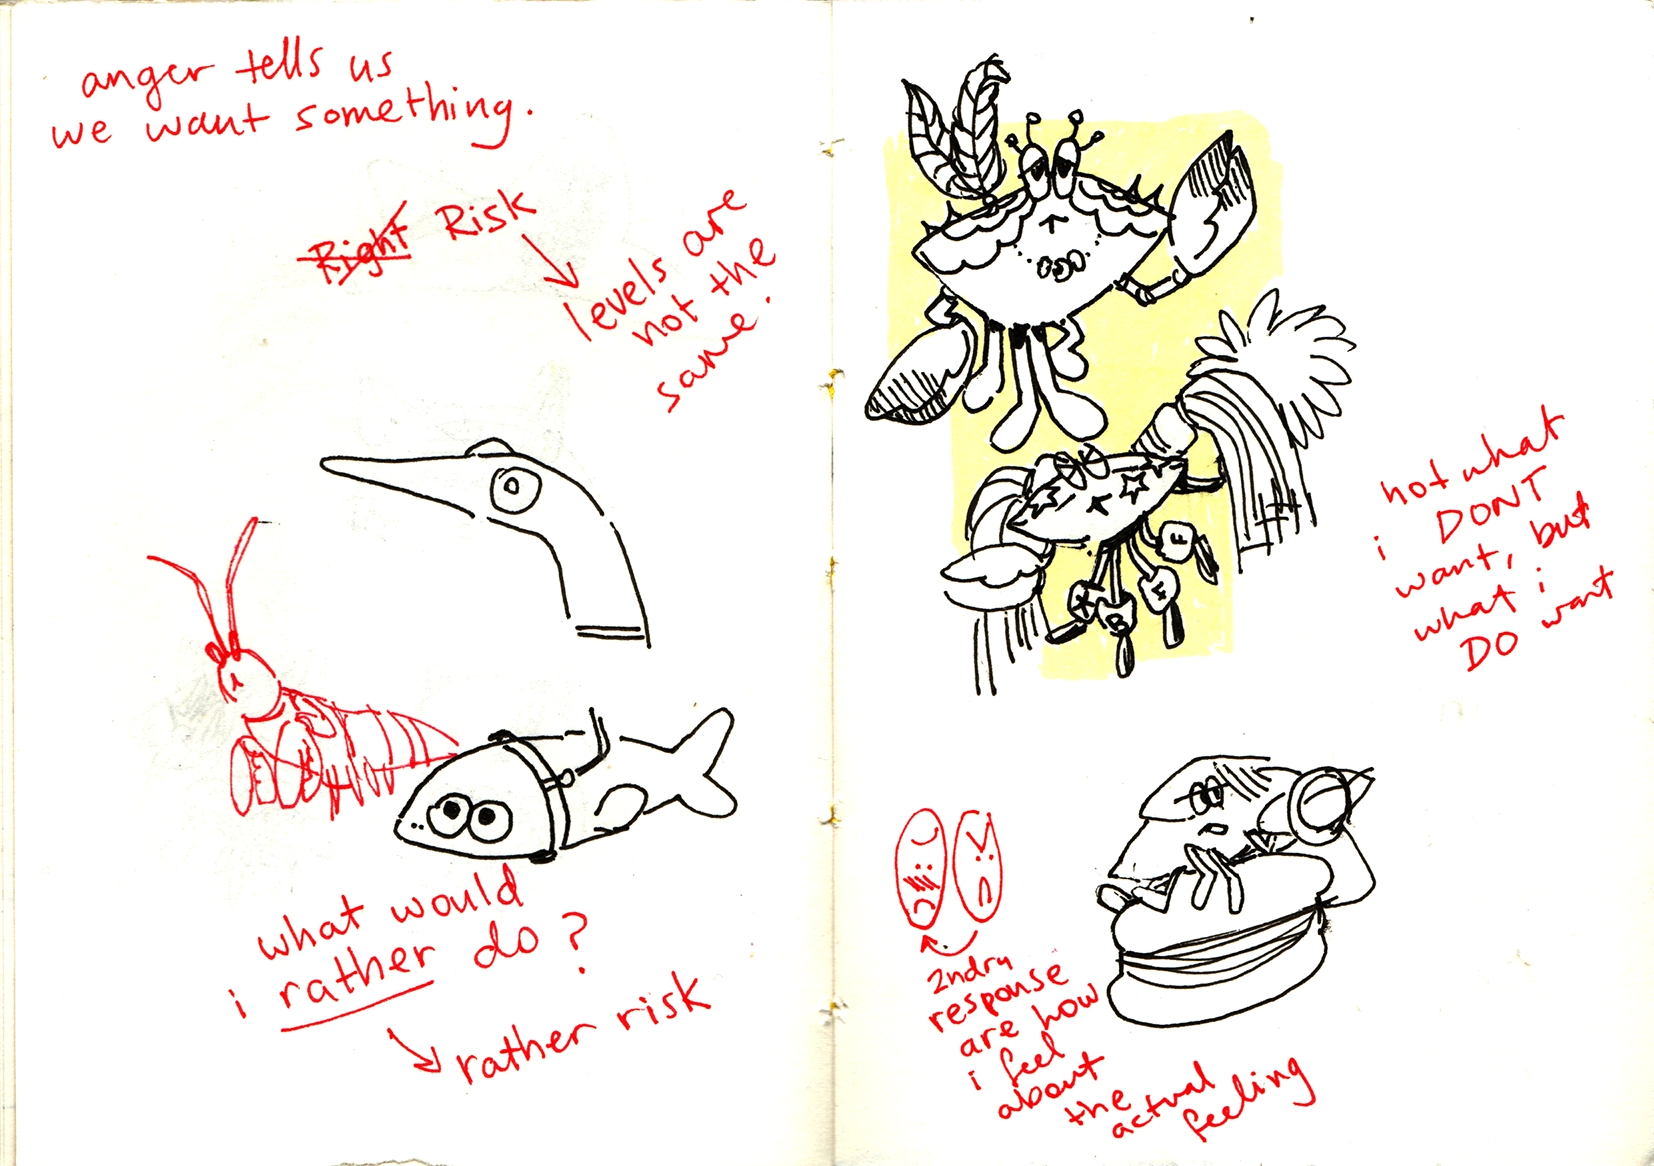 anger tells us
we want something.
Right Risk
levels are
not the
same.
what would
i rather do?
rather risk
not what
i DONT
want, but
what i
DO want
2ndry
response
are how
i feel
about
the
actual
feeling